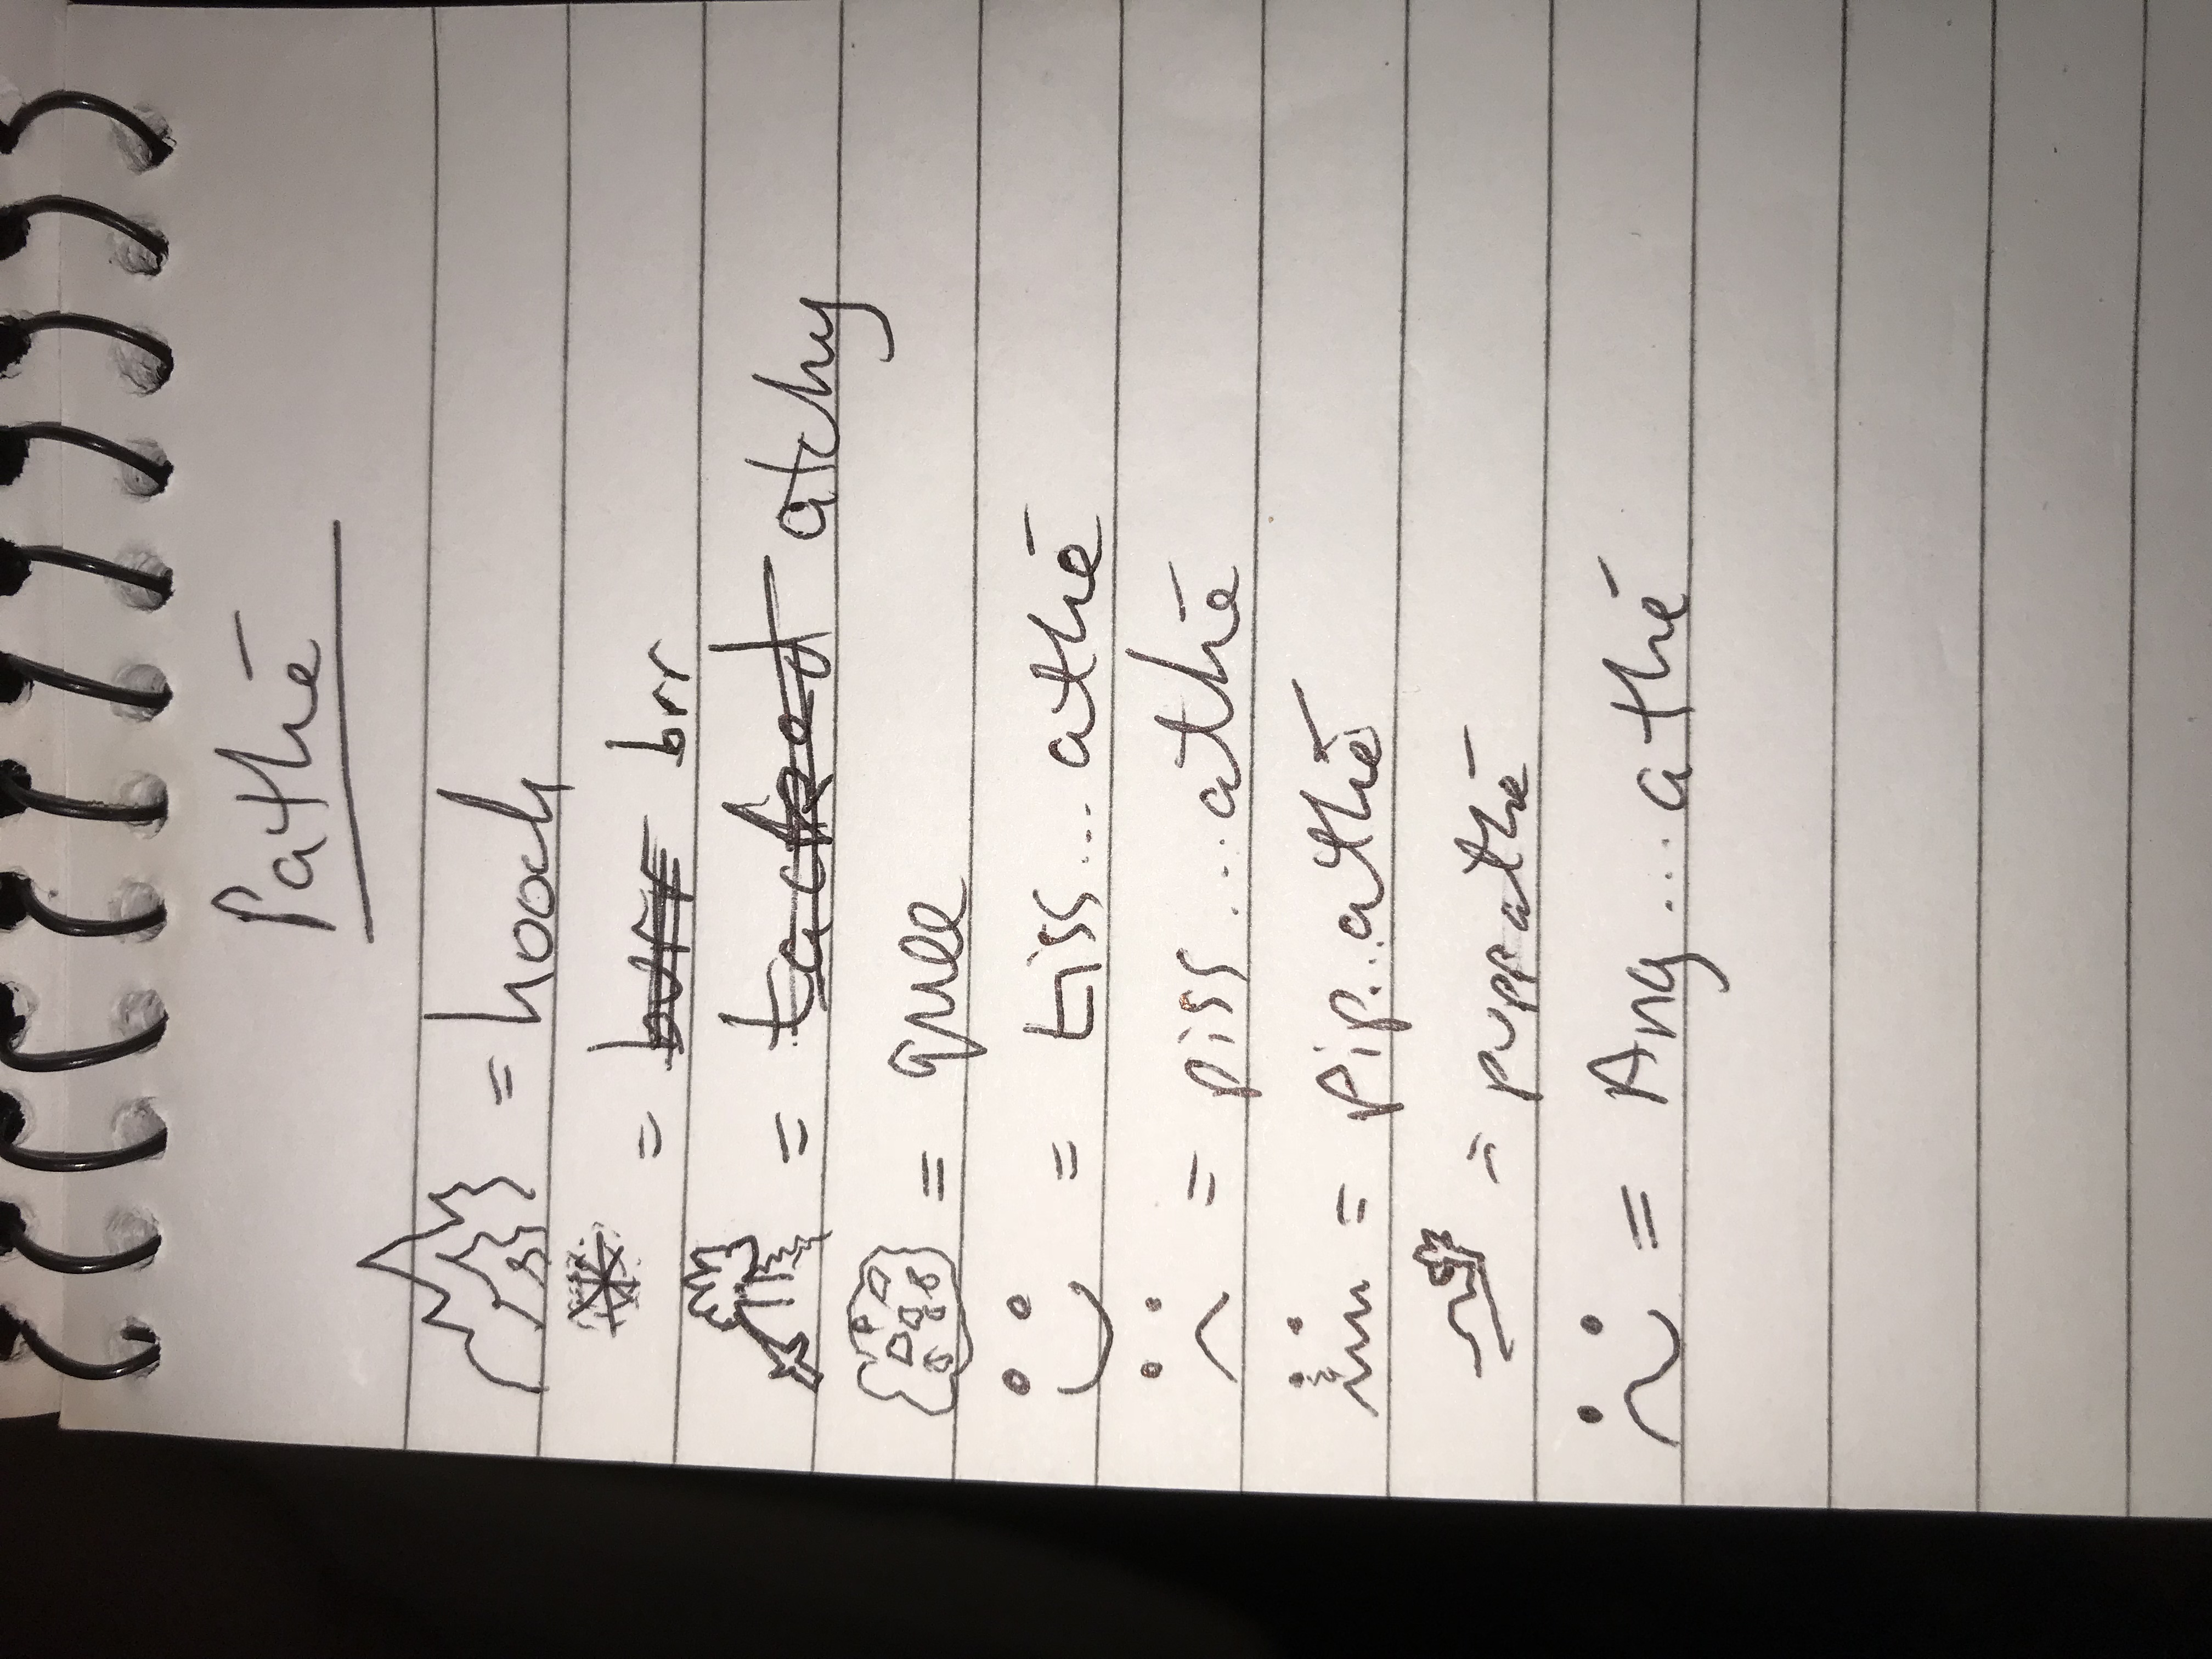 Pathē
= hooch
= burr brr
= tacked atchy
= quee
= tiss...athē
= piss...athē
= pip...athē
= puppathē
= Ang...athē